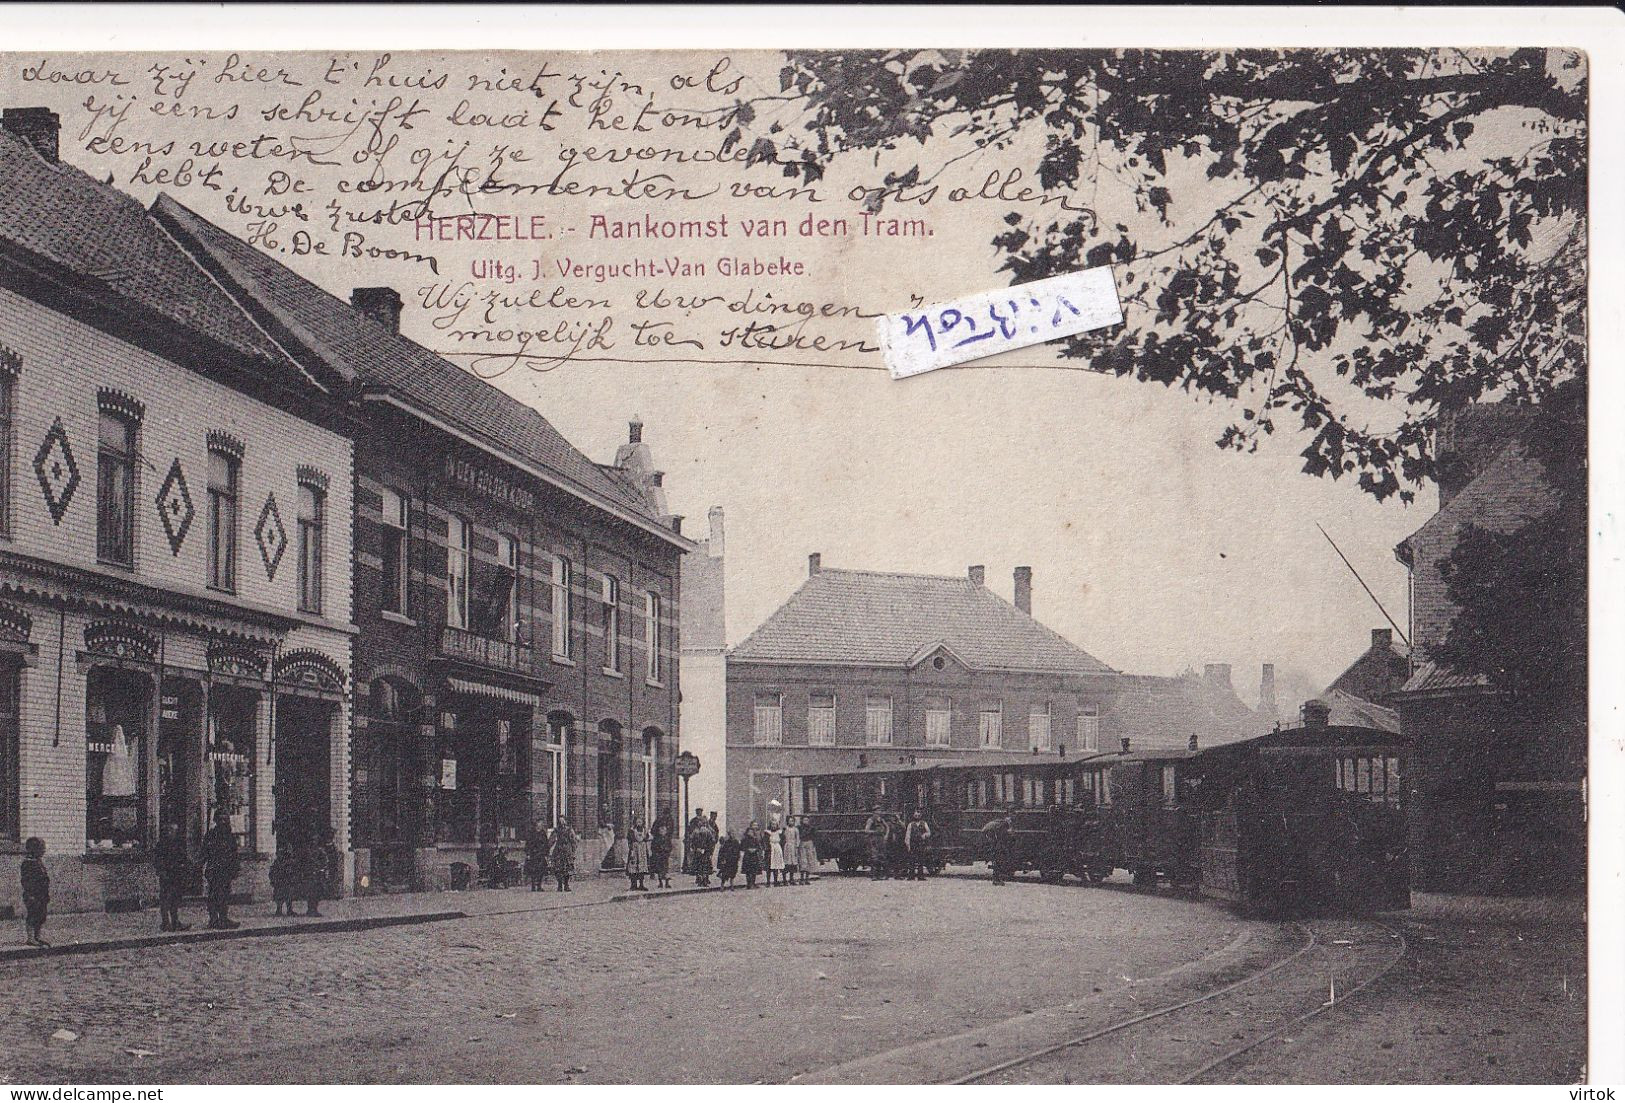 daar zij hier t'huis niet zijn, als
gij eens schrijft laat het ons
eens weten of gij ze gevonden
hebt. De complementen van ons allen
Uwe zuster
H. De Boom
HERZELE. - Aankomst van den Tram.
Uitg. J. Vergucht-Van Glabeke.
Wij zullen Uw dingen
mogelijk toe sturen
Virtok
MERCERIE
virtok